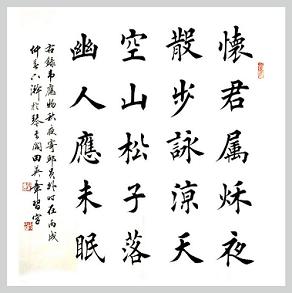 懷君属秋夜
散步詠涼天
空山松子落
幽人應未眠
右錄韋應物秋夜寄邱員外时在丙戌
仲春於琴閣田英章習字